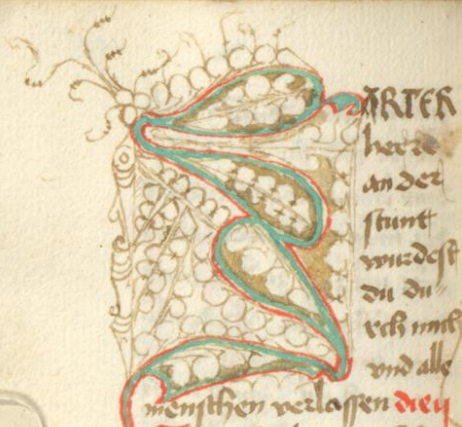 ZARTER
herre
an der
stunt
wurdest
du du=
rch mich
vnd alle
menschen verlassen